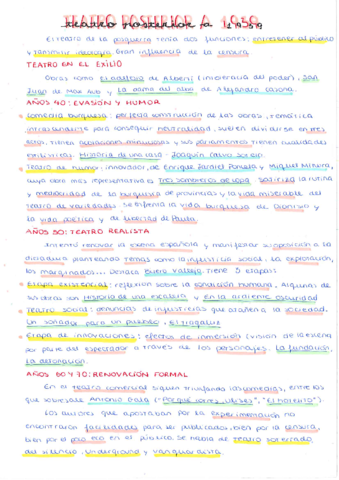 TEATRO POSTERIOR A 1939
El teatro de la posguerra tenía dos funciones: entretener al pueblo
y transmitir ideología. Gran influencia de la censura.
TEATRO EN EL EXILIO
Obras como El adefesio de Alberti (intolerancia del poder), San
Juan de Max Aub y La dama del alba de Alejandro Casona.
AÑOS 40: EVASIÓN Y HUMOR
Comedia burguesa: perfecta construcción de las obras, temática
intrascendente para conseguir neutralidad, suelen dividirse en tres
actos, tienen acotaciones minuciosas y sus parlamentos tienen cualidades
estilísticas. Historia de una casa: Joaquín Calvo Sotelo.
Teatro de humor: innovador, de Enrique Jardiel Poncela y Miguel Mihura,
cuya obra más representativa es Tres sombreros de copa. Satiriza la rutina
y mediocridad de la burguesía de provincias y la vida miserable del
teatro de variedades. Se enfrenta la vida burguesa de Dionisio y
la vida poética y de libertad de Paula.
AÑOS 50: TEATRO REALISTA
Intentó renovar la escena española y manifestar su oposición a la
dictadura planteando temas como la injusticia social, la explotación,
los marginados... Destaca Buero Vallejo. Tiene 3 etapas:
Etapa existencial: reflexión sobre la condición humana. Algunas de
sus obras son Historia de una escalera y En la ardiente oscuridad
Teatro social: denuncias de injusticias que atañen a la sociedad.
Un soñador para un pueblo, El tragaluz
Etapa de innovaciones: efectos de inmersión (visión de la escena
por parte del espectador a través de los personajes. La fundación,
La detonación.
AÑOS 60 Y 70: RENOVACIÓN FORMAL
En el teatro comercial siguen triunfando las comedias, entre los
que sobresale Antonio Gala ("¿Por qué corres, Ulises?",
Los autores que apostaban por la experimentación no
encontraron facilidades para ser publicados, bien por la censura,
bien por el poco eco en el público. Se habla de teatro soterrado,
del silencio, underground y vanguardista